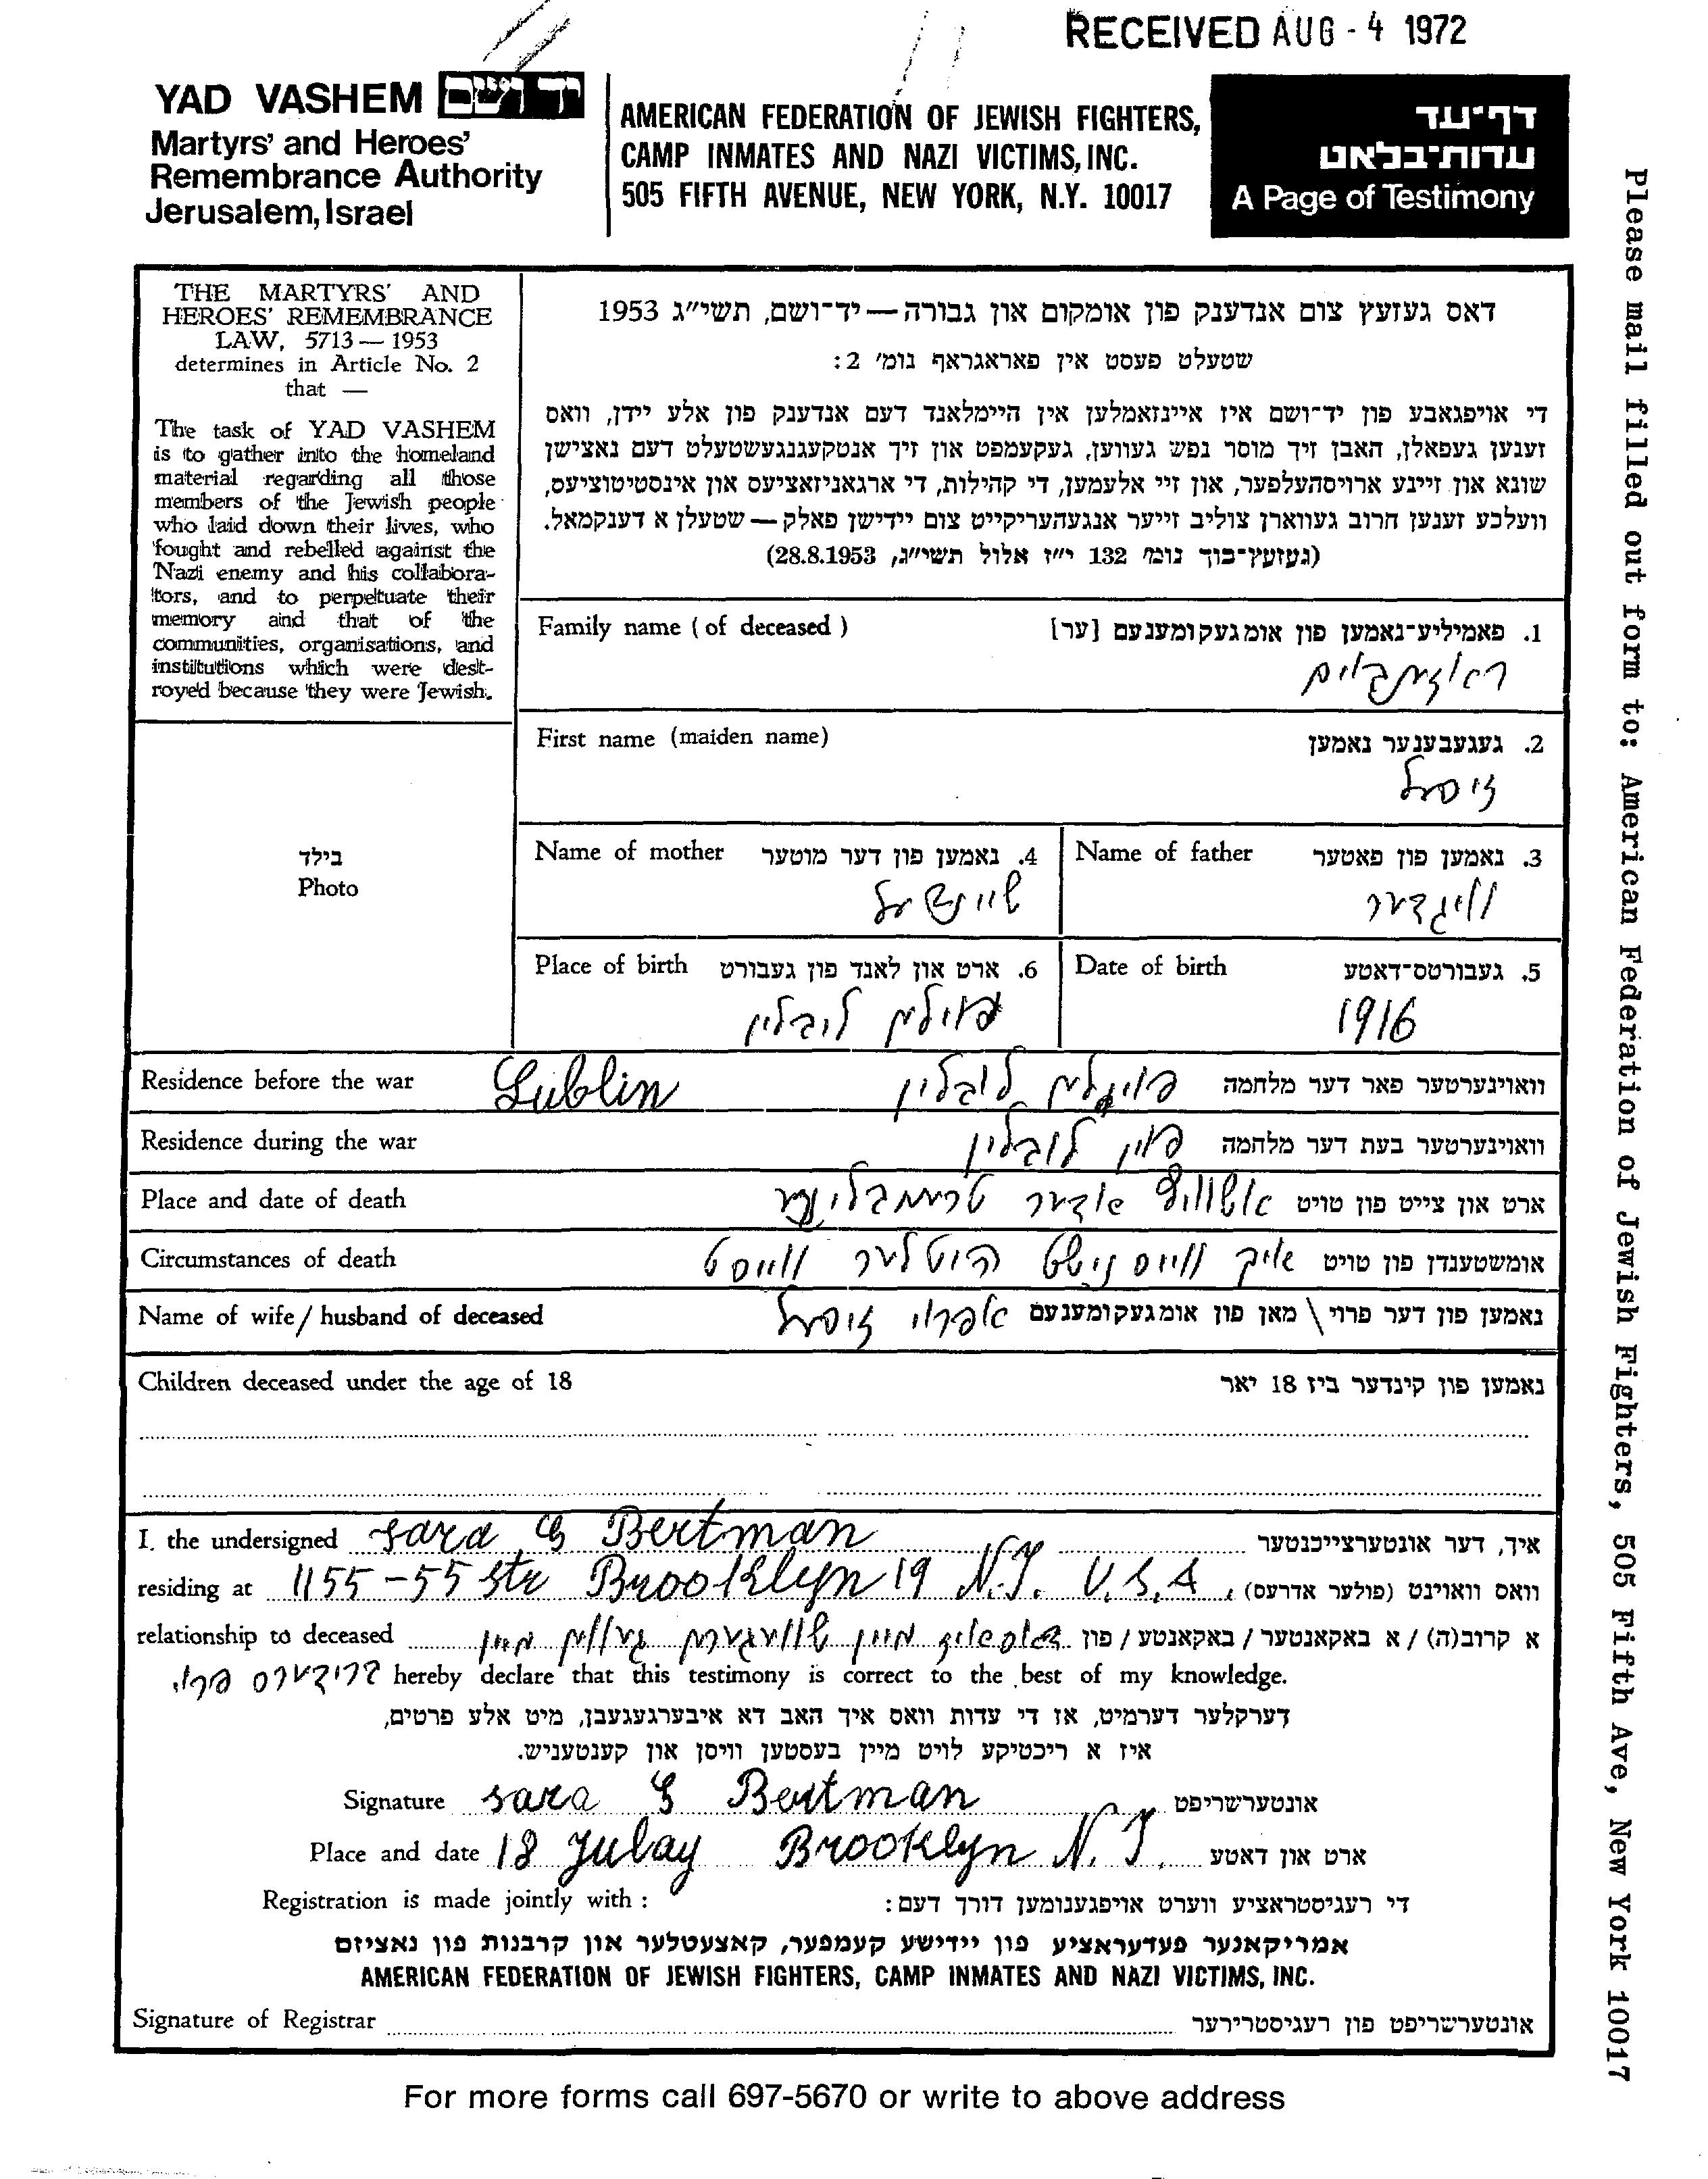 RECEIVED AUG - 4 1972
YAD VASHEM יד ושם
Martyrs' and Heroes'
Remembrance Authority
Jerusalem, Israel
AMERICAN FEDERATION OF JEWISH FIGHTERS,
CAMP INMATES AND NAZI VICTIMS, INC.
505 FIFTH AVENUE, NEW YORK, N.Y. 10017
דף־עד
עדות־בלאט
A Page of Testimony
THE MARTYRS' AND
HEROES' REMEMBRANCE
LAW, 5713 — 1953
determines in Article No. 2
that —
The task of YAD VASHEM
is to gather into the homeland
material regarding all those
members of the Jewish people
who laid down their lives, who
fought and rebelled against the
Nazi enemy and his collabora-
tors, and to perpetuate their
memory and that of the
communities, organisations, and
institutions which were dest-
royed because they were Jewish.
דאס געזעץ צום אנדענק פון אומקום און גבורה — יד־ושם, תשי״ג 1953
שטעלט פעסט אין פאראגראף נומ׳ 2:
די אויפגאבע פון יד־ושם איז איינזאמלען אין היימלאנד דעם אנדענק פון אלע יידן, וואס
זענען געפאלן, האבן זיך מוסר נפש געווען, געקעמפט און זיך אנטקעגנגעשטעלט דעם נאצישן
שונא און זיינע ארויסהעלפער, און זיי אלעמען, די קהילות, די ארגאניזאציעס און אינסטיטוציעס,
וועלכע זענען חרוב געווארן צוליב זייער אנגעהעריקייט צום יידישן פאלק — שטעלן א דענקמאל.
(געזעץ־בוך נומ׳ 132 י״ז אלול תשי״ג, 28.8.1953)
Family name (of deceased)
1. פאמיליע־נאמען פון אומגעקומענעם [ער]
ראזנבוים
First name (maiden name)
2. געגעבענער נאמען
זיסל
בילד
Photo
Name of mother 4. נאמען פון דער מוטער
שיינדל
Name of father 3. נאמען פון פאטער
וויגדער
Place of birth 6. ארט און לאנד פון געבורט
פוילן לובלין
Date of birth 5. געבורטס־דאטע
1916
Residence before the war Lublin פוילן לובלין וואוינערטער פאר דער מלחמה
Residence during the war פון לובלין וואוינערטער בעת דער מלחמה
Place and date of death אשוויץ אדער טרעמבלינע ארט און צייט פון טויט
Circumstances of death איך ווייס נישט היטלער ווייסט אומשטענדן פון טויט
Name of wife / husband of deceased זיסל נאמען פון דער פרוי \ מאן פון אומגעקומענעם
Children deceased under the age of 18 נאמען פון קינדער ביז 18 יאר
I, the undersigned Sara G Bertman איך, דער אונטערצייכנטער
residing at 1155-55 Str Brooklyn 19 N.Y. U.S.A. וואס וואוינט (פולער אדרעס)
relationship to deceased מיין שוועגערין געווען מיין א קרוב(ה) / א באקאנטער / באקאנטע / פון
ברידערס פרוי hereby declare that this testimony is correct to the best of my knowledge.
דערקלער דערמיט, אז די עדות וואס איך האב דא איבערגעגעבן, מיט אלע פרטים,
איז א ריכטיקע לויט מיין בעסטען וויסן און קענטעניש.
Signature Sara G Bertman אונטערשריפט
Place and date 18 Julay Brooklyn N.Y. ארט און דאטע
Registration is made jointly with: די רעגיסטראציע ווערט אויפגענומען דורך דעם:
אמריקאנער פעדעראציע פון יידישע קעמפער, קאצעטלער און קרבנות פון נאציזם
AMERICAN FEDERATION OF JEWISH FIGHTERS, CAMP INMATES AND NAZI VICTIMS, INC.
Signature of Registrar אונטערשריפט פון רעגיסטרירער
For more forms call 697-5670 or write to above address
Please mail filled out form to: American Federation of Jewish Fighters, 505 Fifth Ave, New York 10017